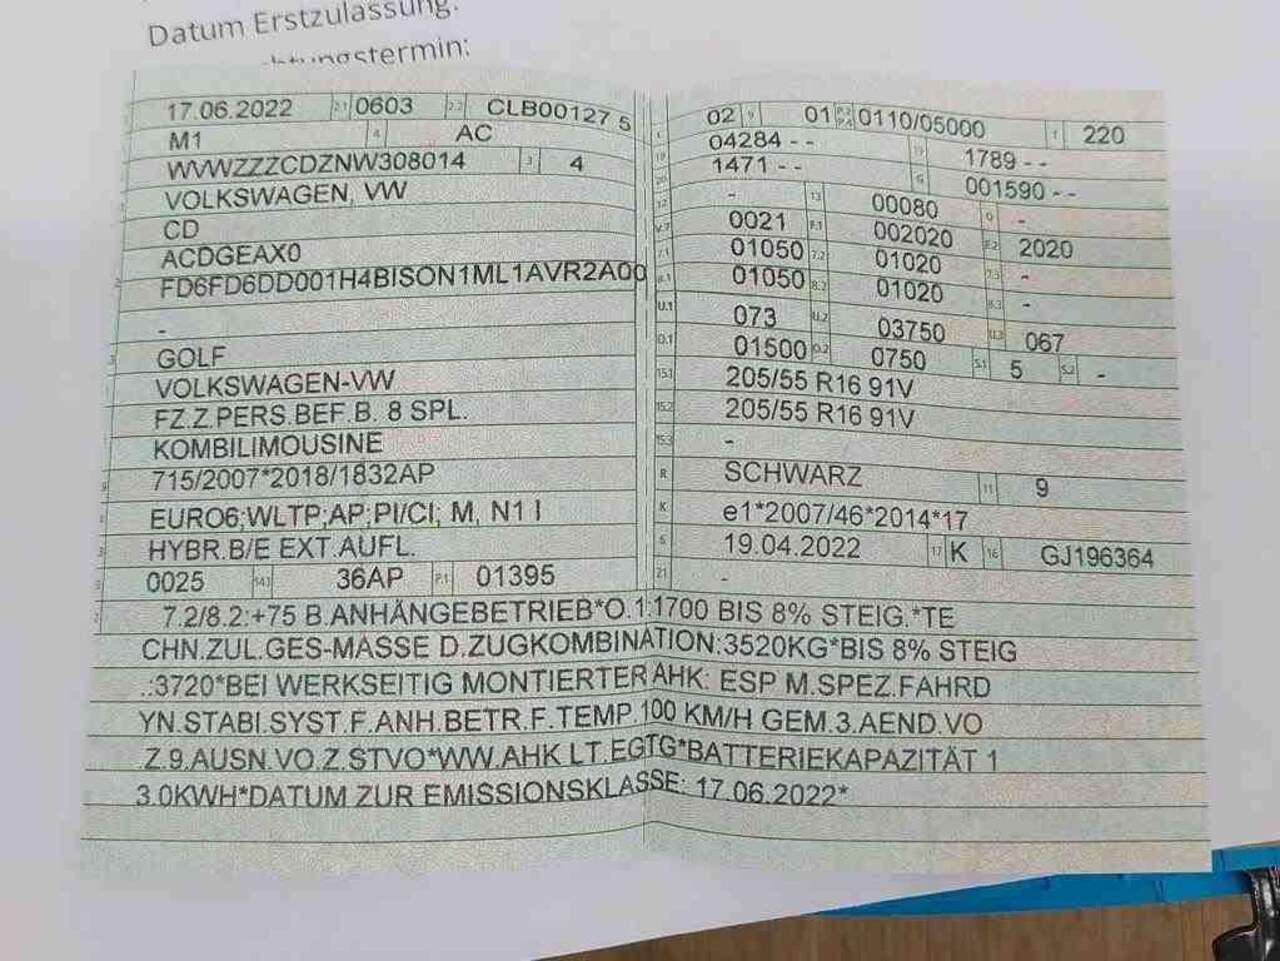 Datum Erstzulassung:
17.06.2022 2.1 0603 2.2 CLB00127 5
M1 4 AC
WVWZZZCDZNW308014 3 4
VOLKSWAGEN, VW
CD
ACDGEAX0
FD6FD6DD001H4BISON1ML1AVR2A00
-
GOLF
VOLKSWAGEN-VW
FZ.Z.PERS.BEF.B. 8 SPL.
KOMBILIMOUSINE
715/2007*2018/1832AP
EURO6;WLTP;AP;PI/CI; M, N1 I
HYBR.B/E EXT.AUFL.
0025 14.1 36AP P.1 01395
L 02 9 01 P.2 P.4 0110/05000 T 220
18 04284 - - 19 1789 - -
20 1471 - - G 001590 - -
12 - 13 00080 Q -
V.7 0021 F.1 002020 F.2 2020
7.1 01050 7.2 01020 7.3 -
8.1 01050 8.2 01020 8.3 -
U.1 073 U.2 03750 U.3 067
O.1 01500 O.2 0750 S.1 5 S.2 -
15.1 205/55 R16 91V
15.2 205/55 R16 91V
15.3 -
R SCHWARZ 11 9
K e1*2007/46*2014*17
6 19.04.2022 17 K 16 GJ196364
21 -
7.2/8.2:+75 B.ANHÄNGEBETRIEB*O.1:1700 BIS 8% STEIG.*TE
CHN.ZUL.GES-MASSE D.ZUGKOMBINATION:3520KG*BIS 8% STEIG
.:3720*BEI WERKSEITIG MONTIERTER AHK: ESP M.SPEZ.FAHRD
YN.STABI.SYST.F.ANH.BETR.F.TEMP.100 KM/H GEM.3.AEND.VO
Z.9.AUSN.VO.Z.STVO*WW.AHK LT.EGTG*BATTERIEKAPAZITÄT 1
3.0KWH*DATUM ZUR EMISSIONSKLASSE: 17.06.2022*